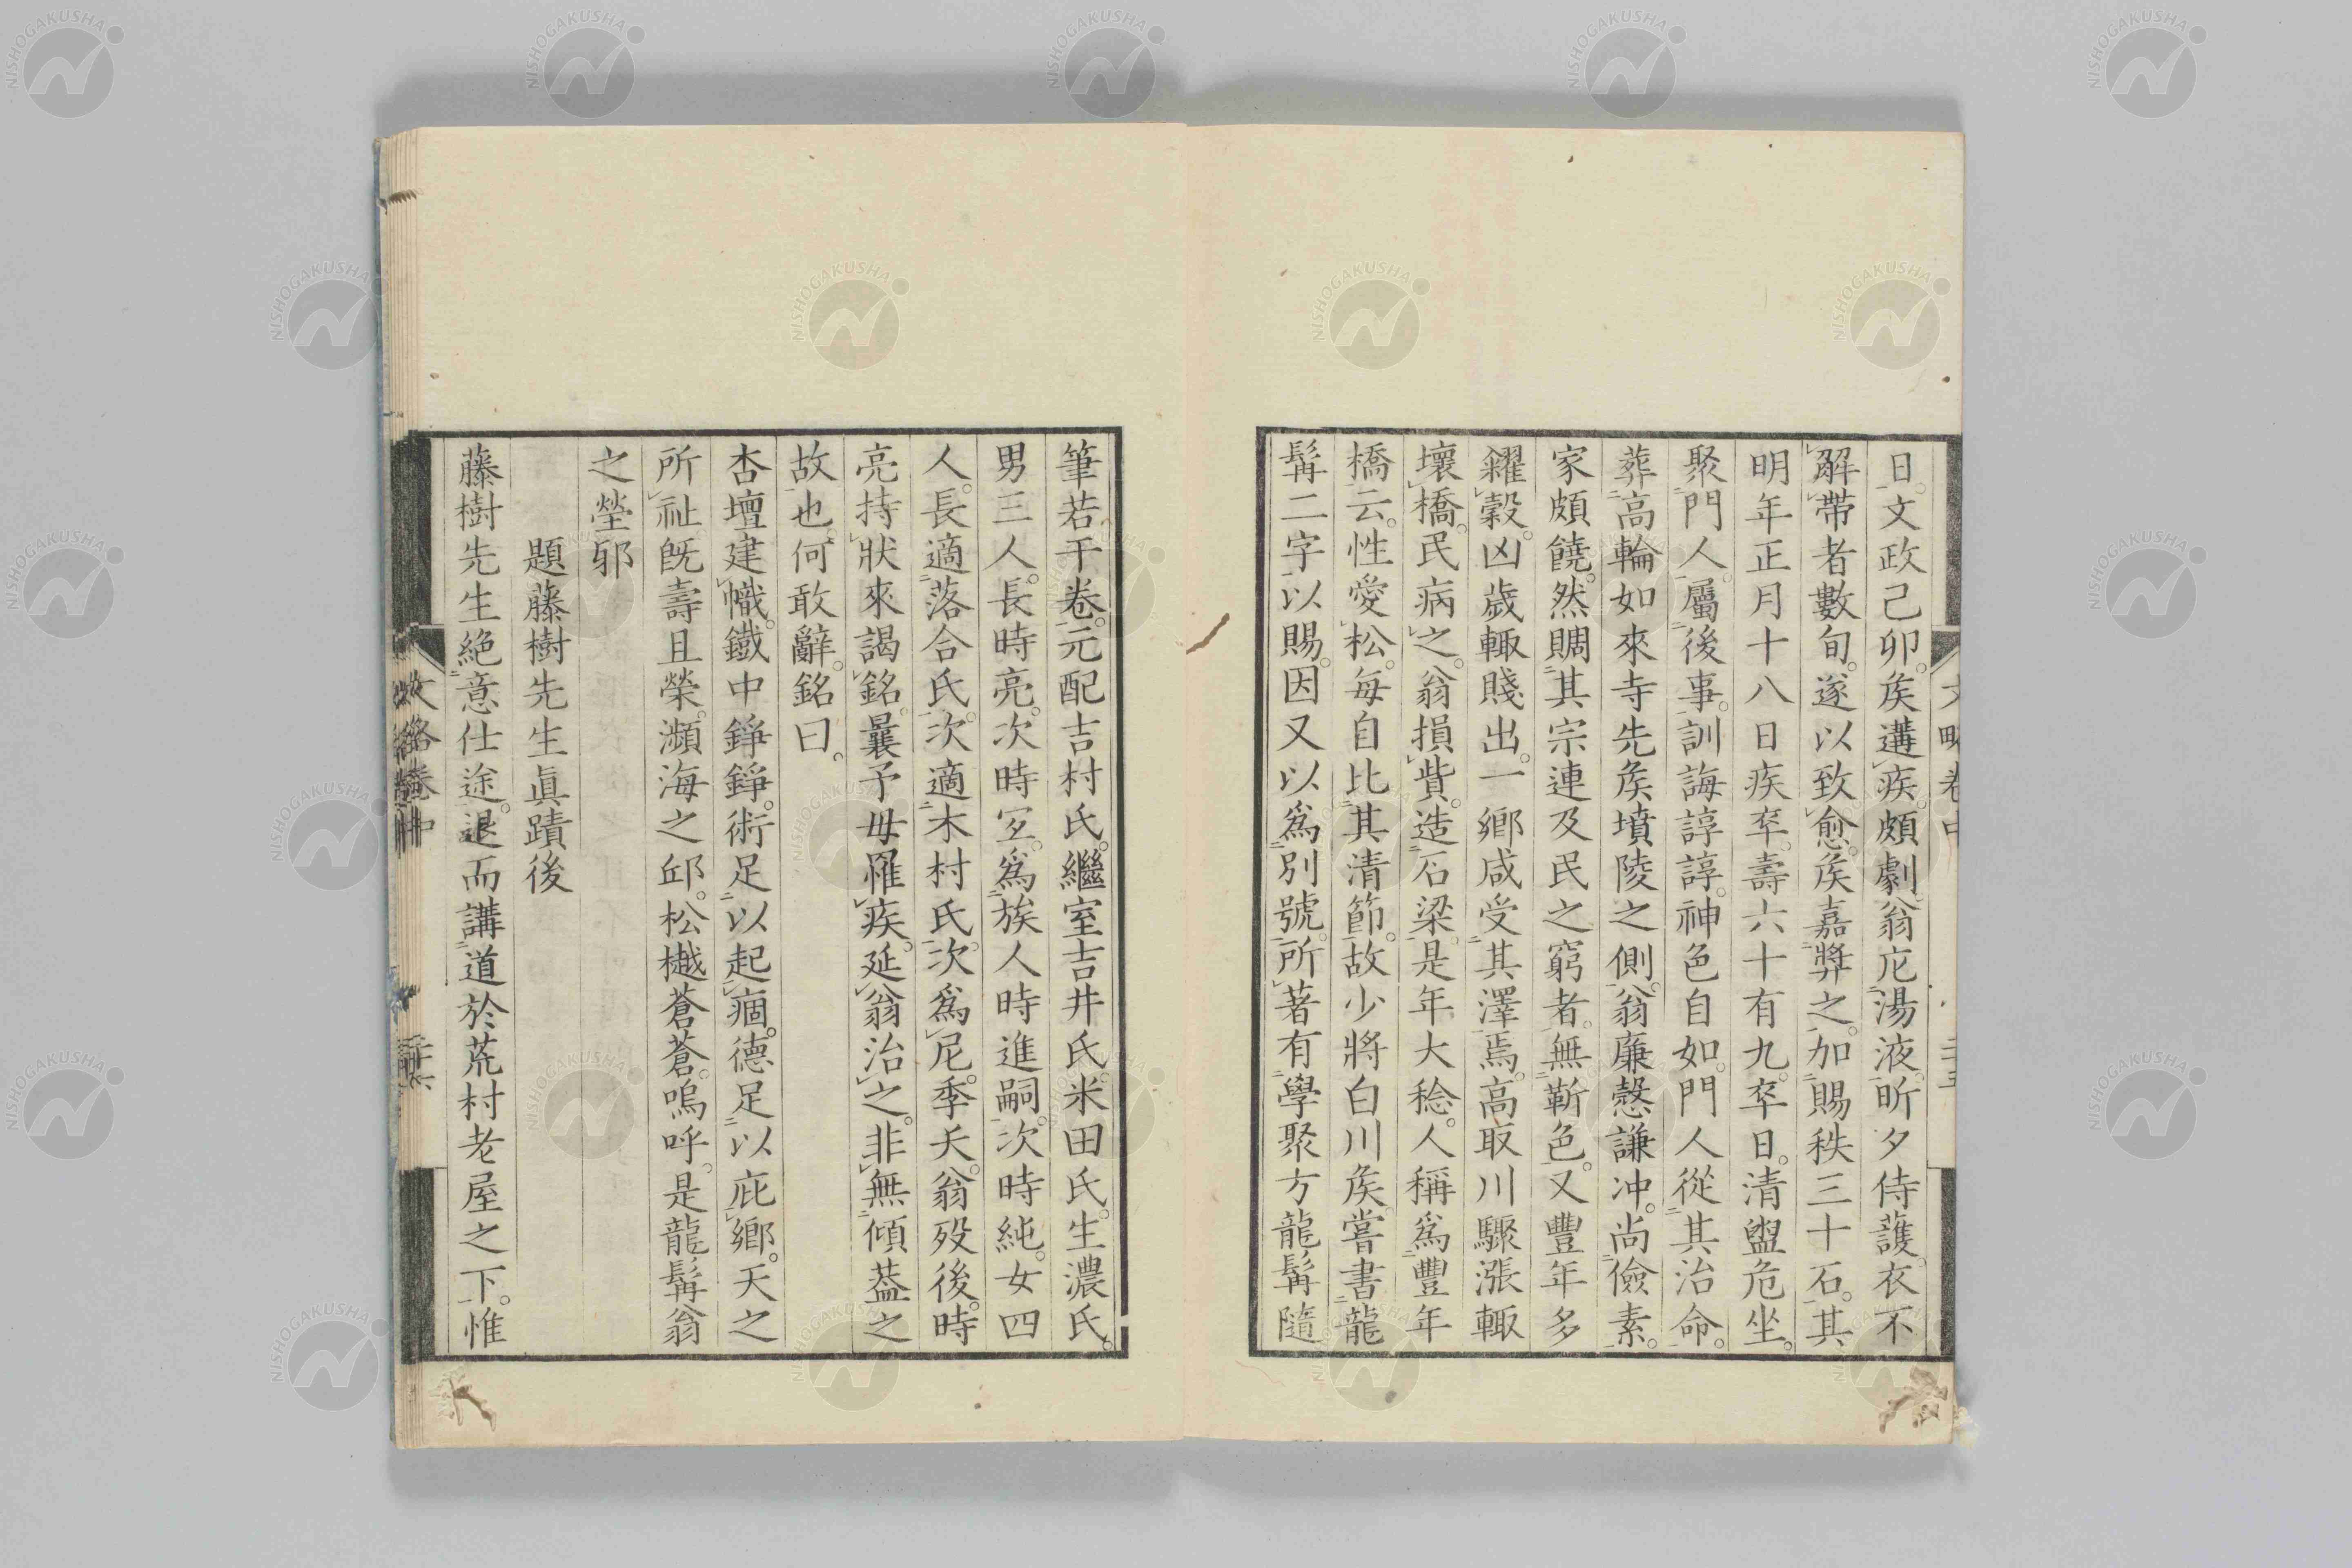 日。文政己卯。矦遘疾。頗劇。翁㕂湯液。昕夕侍護。衣不
解帶者數旬。遂以致愈。矦嘉奬之。加賜秩三十石。其
明年正月十八日疾卒。壽六十有九。卒日。清盥危坐。
聚門人。屬後事。訓誨諄諄。神色自如。門人從其治命。
葬高輪如來寺先矦墳陵之側。翁廉慤謙冲。尚儉素。
家頗饒。然賙其宗連及民之窮者。無靳色。又豐年多
糴穀。凶歲輙賤出。一鄉咸受其澤焉。高取川驟漲輙
壞橋。民病之。翁損貲。造石梁。是年大稔。人稱爲豐年
橋云。性愛松。每自比其清節。故少將白川矦。嘗書龍
髯二字以賜。因又以爲別號。所著有學聚方龍髯隨
筆若干卷。元配吉村氏。繼室吉井氏。米田氏。生濃氏。
男三人。長時亮。次時㝎。爲族人時進嗣。次時純。女四
人。長適落合氏。次適木村氏。次爲尼。季夭。翁歿後。時
亮持狀來謁銘。曩予毋罹疾。延翁治之。非無傾蓋之
故也。何敢辭。銘曰。
杏壇建幟。鐵中錚錚。術足以起痼。德足以庇鄉。天之
所祉旣壽且榮。瀕海之邱。松樾蒼蒼。嗚呼。是龍髯翁
之塋邪
題藤樹先生眞蹟後
藤樹先生絕意仕途。退而講道於荒村老屋之下。惟
文略卷中
NISHOGAKUSHA